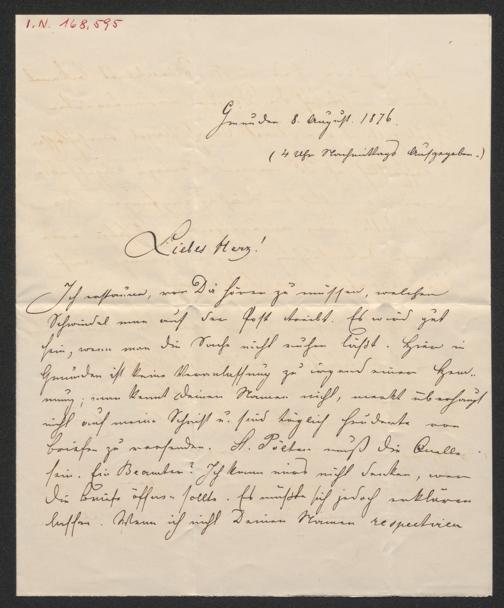 I.N. 168,595
Gmunden 8. August. 1876.
(4 Uhr Nachmittags Aufgegeben.)
Liebes Herz!
Ich erstaune, von Dir hören zu müssen, welchen
Schwindel man auf der Post treibt. Es wird gut
sein, wenn man die Sache nicht ruhen läßt. Hier in
Gmunden ist keine Veranlassung zu irgend einer Hem-
mung; man kennt Deinen Namen nicht, merkt überhaupt
nicht auf meine Schrift u. sind täglich hunderte von
Briefen zu versenden. St. Pölten muß die Quelle
sein. Ein Beamter? Ich kann mir nicht denken, wer
die Briefe öffnen sollte. Es müßte sich jedoch erklären
lassen. Wenn ich nicht Deinen Namen respectiren